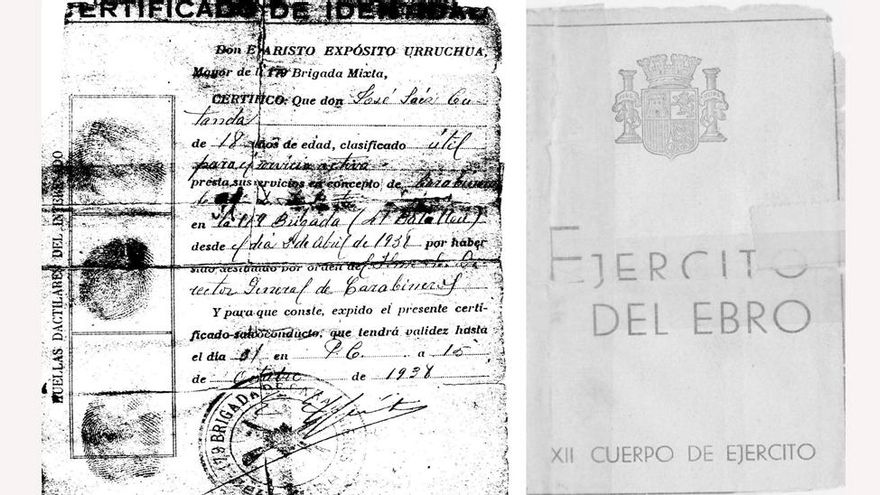 CERTIFICADO DE IDENTIDAD
Don EVARISTO EXPÓSITO URRUCHUA,
Mayor de la 179 Brigada Mixta,
CERTIFICO: Que don José Saíz Cu-
tanda
de 18 años de edad, clasificado útil
para servicio activo
presta sus servicios en concepto de Carabinero
en la 179 Brigada (4º Batallón)
desde el día de Abril de 1938 por haber
sido destinado por orden del Ilmo Sr. Di-
rector General de Carabineros
Y para que conste, expido el presente certi-
ficado-salvoconducto, que tendrá validez hasta
el día 31 en P.C. a 15
de Octubre de 1938
HUELLAS DACTILARES DEL INTERESADO
179 BRIGADA
EJERCITO
DEL EBRO
XII CUERPO DE EJERCITO